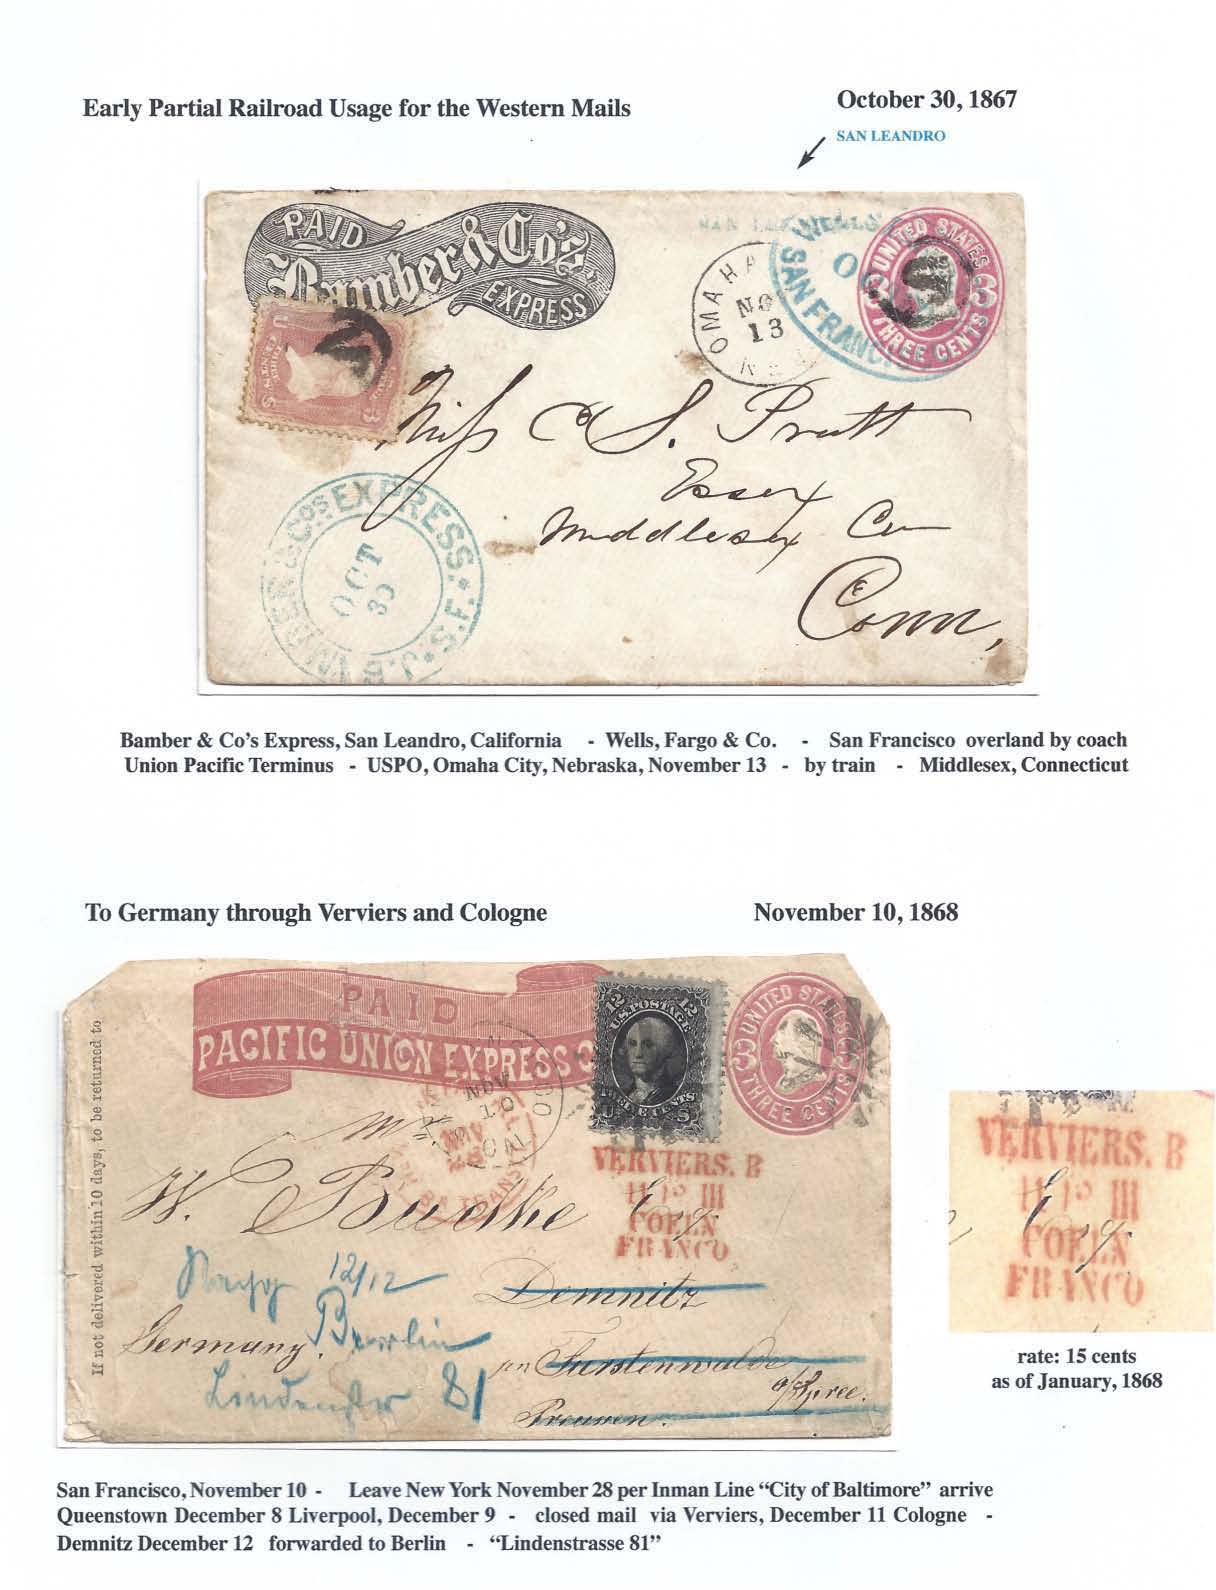 Early Partial Railroad Usage for the Western Mails
October 30, 1867
SAN LEANDRO
PAID
Bamber & Co's.
EXPRESS
WELLS
SAN FRANC
OMAHA
NOV
13
NEB
UNITED STATES
3 3
THREE CENTS
Miss C S. Pratt
Essex
Middlesex Co
Conn,
BAMBER & CO'S EXPRESS. S.F.
OCT
30
Bamber & Co’s Express, San Leandro, California - Wells, Fargo & Co. - San Francisco overland by coach
Union Pacific Terminus - USPO, Omaha City, Nebraska, November 13 - by train - Middlesex, Connecticut
To Germany through Verviers and Cologne
November 10, 1868
If not delivered within 10 days, to be returned to
PAID
PACIFIC UNION EXPRESS CO
NOV
10
12 12
U.S. POSTAGE
TWELVE CENTS
U S
UNITED STATES
3 3
THREE CENTS
VERVIERS. B
III
COELN
FRANCO
W. Buethe Esq.
Demnitz
12/12
Berlin
Germany.
Furstenwalde
a/Spree.
Preussen.
81
VERVIERS. B
III
COELN
FRANCO
Esq.
rate: 15 cents
as of January, 1868
San Francisco, November 10 - Leave New York November 28 per Inman Line “City of Baltimore” arrive
Queenstown December 8 Liverpool, December 9 - closed mail via Verviers, December 11 Cologne -
Demnitz December 12 forwarded to Berlin - “Lindenstrasse 81”